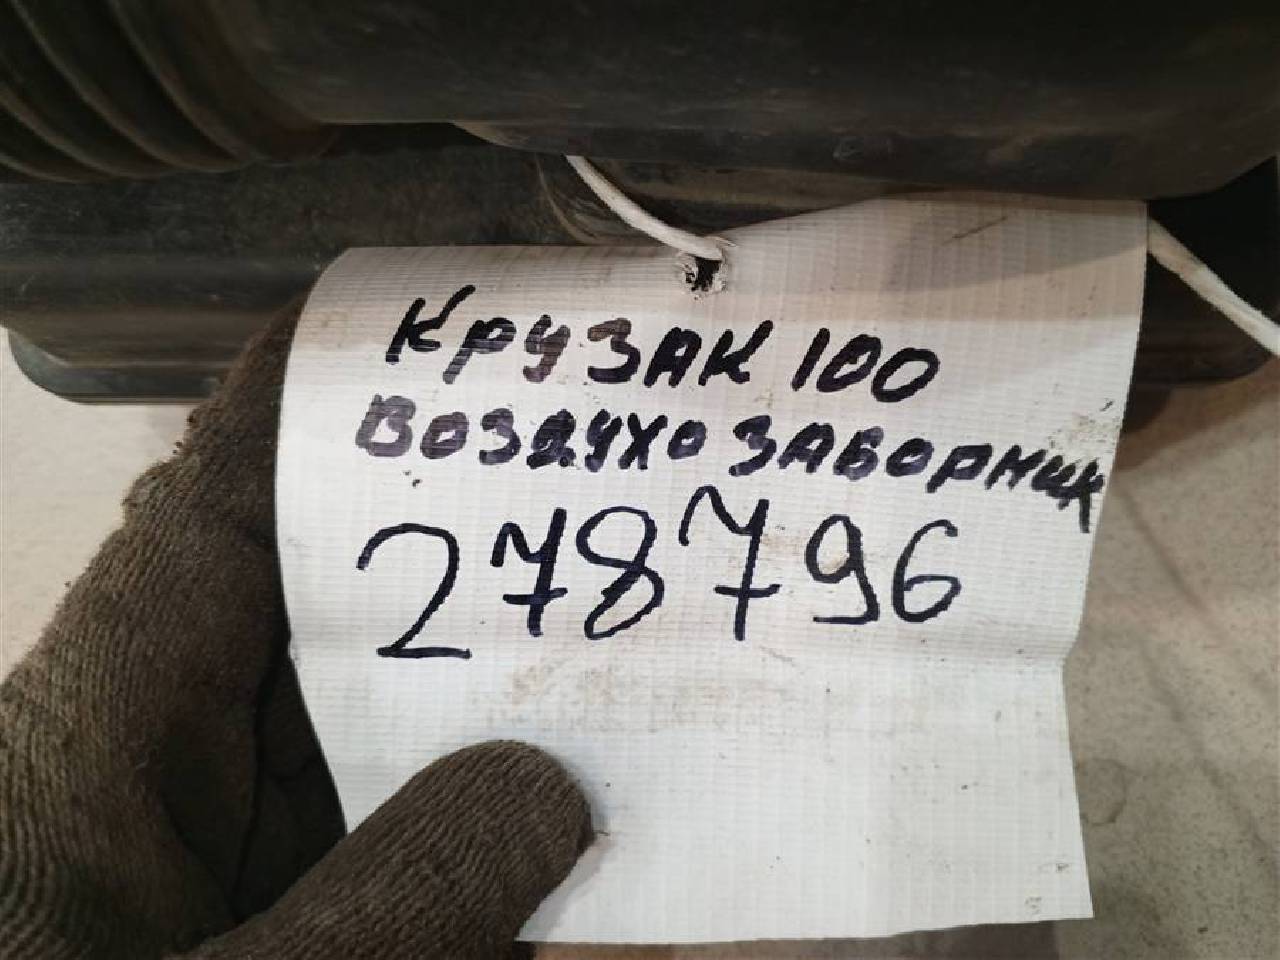 Крузак 100
Воздухозаборник
278796